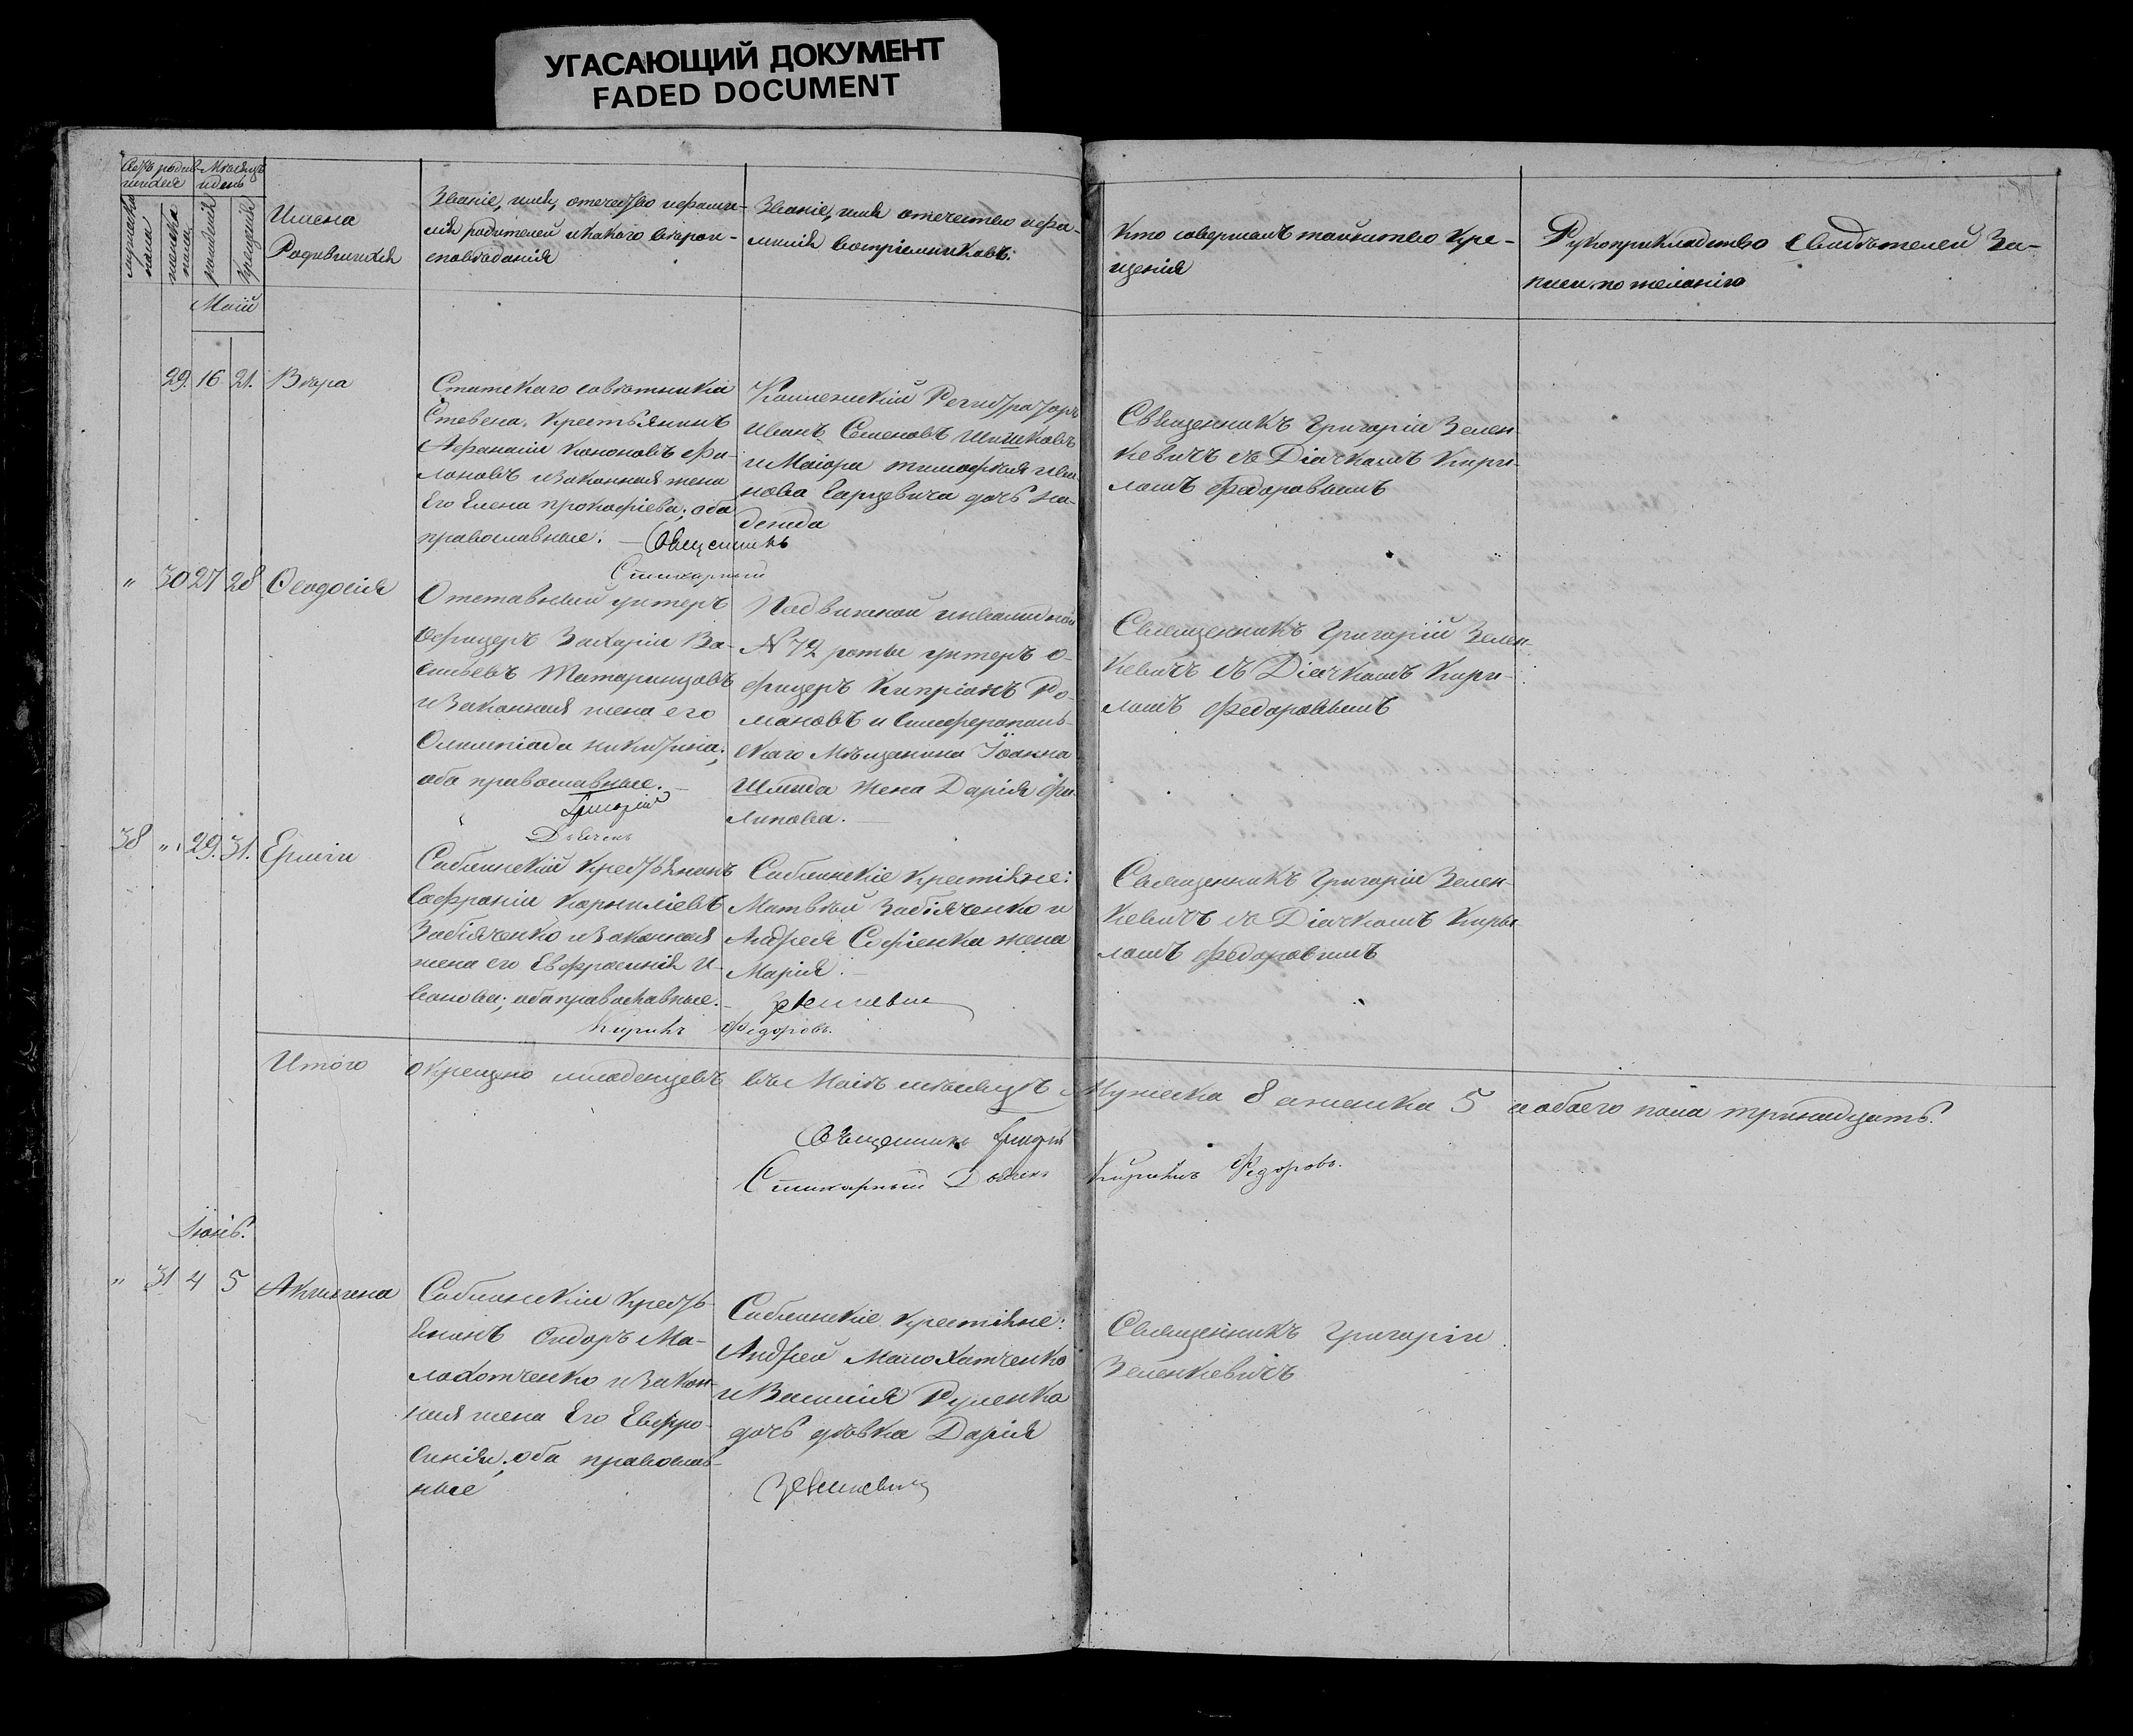 УГАСАЮЩИЙ ДОКУМЕНТ
FADED DOCUMENT
Мѣсяцъ
и день
мужеска
пола
женска
пола
рожденія
крещенія
Имена
Родившихся
Званіе, имя, отечество и фами-
лія родителей и какого вѣроис-
повѣданія
Званіе, имя отечество и фа-
милія воспріемниковъ.
Кто совершалъ таинство кре-
щенія
Рукоприкладство свидѣтелей за-
писи по желанію
Маій
29. 16 21. Вѣра
Статскаго совѣтника
Стевена, крестьянинъ
Афанасій Кононовъ Фи-
лоновъ и законная жена
Его Елена Прокофіева; оба
православные.
Коллежскій Регистраторъ
Иванъ Семеновъ Шишковъ
и Маіора Тимофея Ива-
нова дочь На-
дежда
Священникъ Григорій Зелен-
кевичъ съ Діачкомъ Кири-
ломъ Федоровымъ
Священникъ
Стихарный
" 30 27 28 Ѳеодосія
Отставный унтеръ
офицеръ Захарій Ва-
сильевъ Татаринцовъ
и законная жена его
Олимпіада Никитина;
оба православные.
Подвижной инвалидной
N 72 роты унтеръ о-
фицеръ Кипріанъ Ро-
мановъ и Симферополь-
скаго Мѣщанина Іоанна
Шмида жена Дарія Фи-
липова.
Священникъ Григорій Зелен-
кевичъ съ Діачкомъ Кири-
ломъ Федоровымъ
Григорій
Дьячекъ
38 " 29. 31. Ермій
Саблинскій крестьянинъ
Софроній Корниліевъ
Забіяченко и законная
жена его Евфросинія И-
ванова; оба православные.
Саблинскіе крестіяне:
Матвѣй Забіяченко и
Андрея Софіенка жена
Марія.
Священникъ Григорій Зелен-
кевичъ съ Діачкомъ Кири
ломъ Федоровымъ
Зенкевич
Кирилъ Федоровъ.
Итого окрещено младенцевъ въ Маіѣ мѣсяцѣ Мужеска 8 а женска 5 а обоего пола тринадцать.
Священникъ Григорій
Стихарный Дьячекъ Кирилъ Федоровъ.
Іюнь.
" 31 4 5 Акилина
Саблинскій кресть-
янинъ Сидоръ Ма-
лохатченко и закон-
ная жена Его Евфро-
синія; оба православ-
ные
Саблинскіе крестіяне:
Андрей Малохатченко
и Василія Руленка
дочь дѣвка Дарія
Зенкевич
Священникъ Григорій
Зеленкевичъ